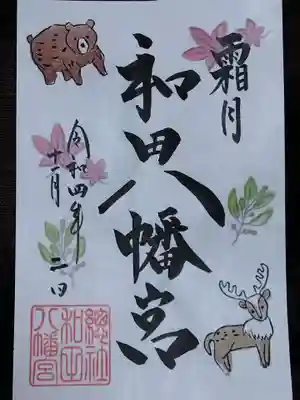 霜月
和田八幡宮
令和四年
十一月二日
總社
和田
八幡宮